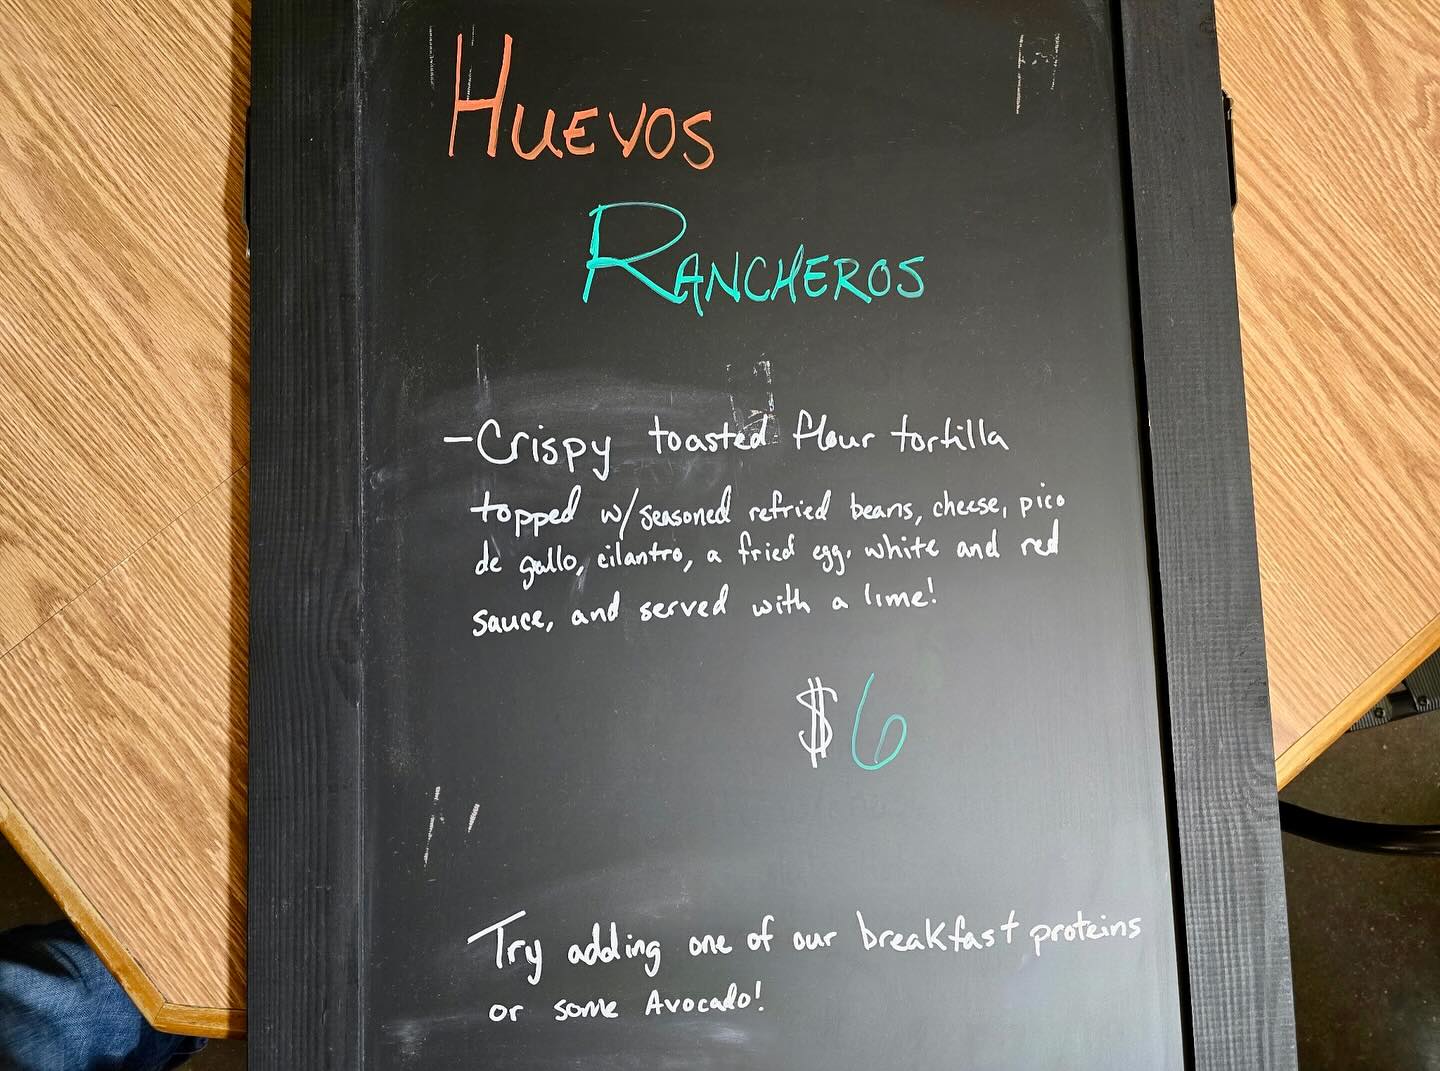 HUEVOS
RANCHEROS
-Crispy toasted flour tortilla
topped w/seasoned refried beans, cheese, pico
de gallo, cilantro, a fried egg, white and red
sauce, and served with a lime!
$6
Try adding one of our breakfast proteins
or some Avocado!